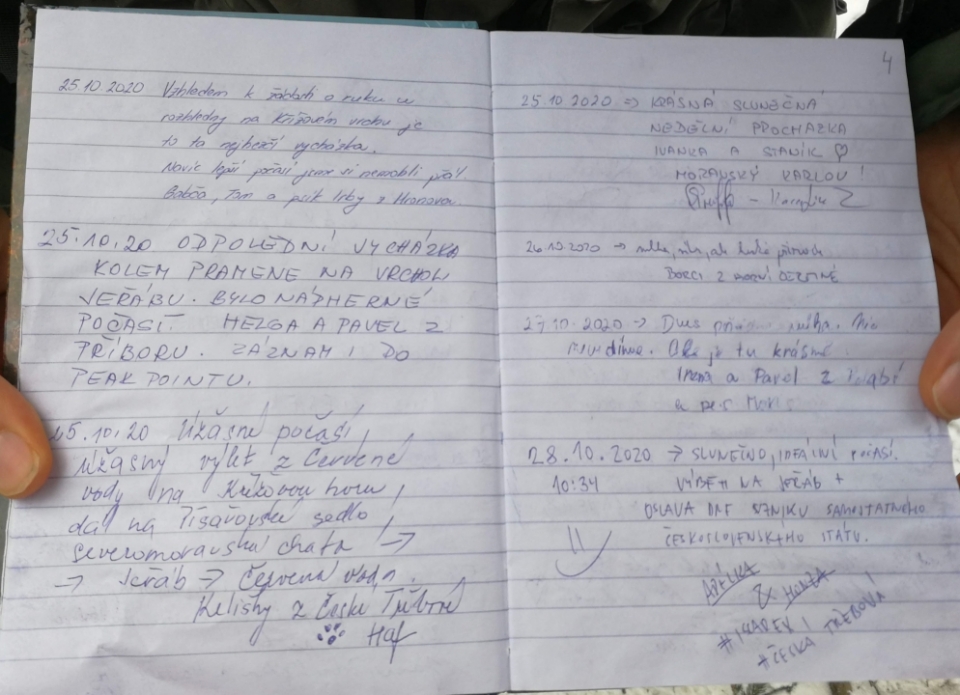 25.10.2020 Vzhledem k žádosti o ruku u
rozhledny na Křížovém vrchu je
to ta nejhezčí vycházka.
Navíc lepší počasí jsme si nemohli přát
Babča, Tom a z Hronova.
25.10.20 ODPOLEDNÍ VYCHÁZKA
KOLEM PRAMENE NA VRCHOL
JEŘÁBU. BYLO NÁDHERNÉ
POČASÍ. HELGA A PAVEL Z
PŘÍBORU. ZÁZNAM I DO
PEAK POINTU.
25.10.20 Úžasné počasí,
úžasný výlet z Červené
vody na Křížovou horu,
dál na sedlo,
Severomoravská chata →
→ Jeřáb → Červená voda.
z České Třebové
Haf
4
25.10.2020 → KRÁSNÁ SLUNEČNÁ
NEDĚLNÍ PROCHÁZKA
IVANKA A STANÍK ♡
MORAVSKÝ KARLOV!
26.10.2020 → mlha, ale
BORCI Z
27.10.2020 → Dnes mlha. Nic
nevidíme. Ale je tu krásně.
a Pavel z
a pes
28.10.2020 → SLUNEČNO, IDEÁLNÍ POČASÍ.
10:34 VÝBĚH NA JEŘÁB +
OSLAVA DNE VZNIKU SAMOSTATNÉHO
ČESKOSLOVENSKÉHO STÁTU.
& HONZA
#ČESKÁ TŘEBOVÁ